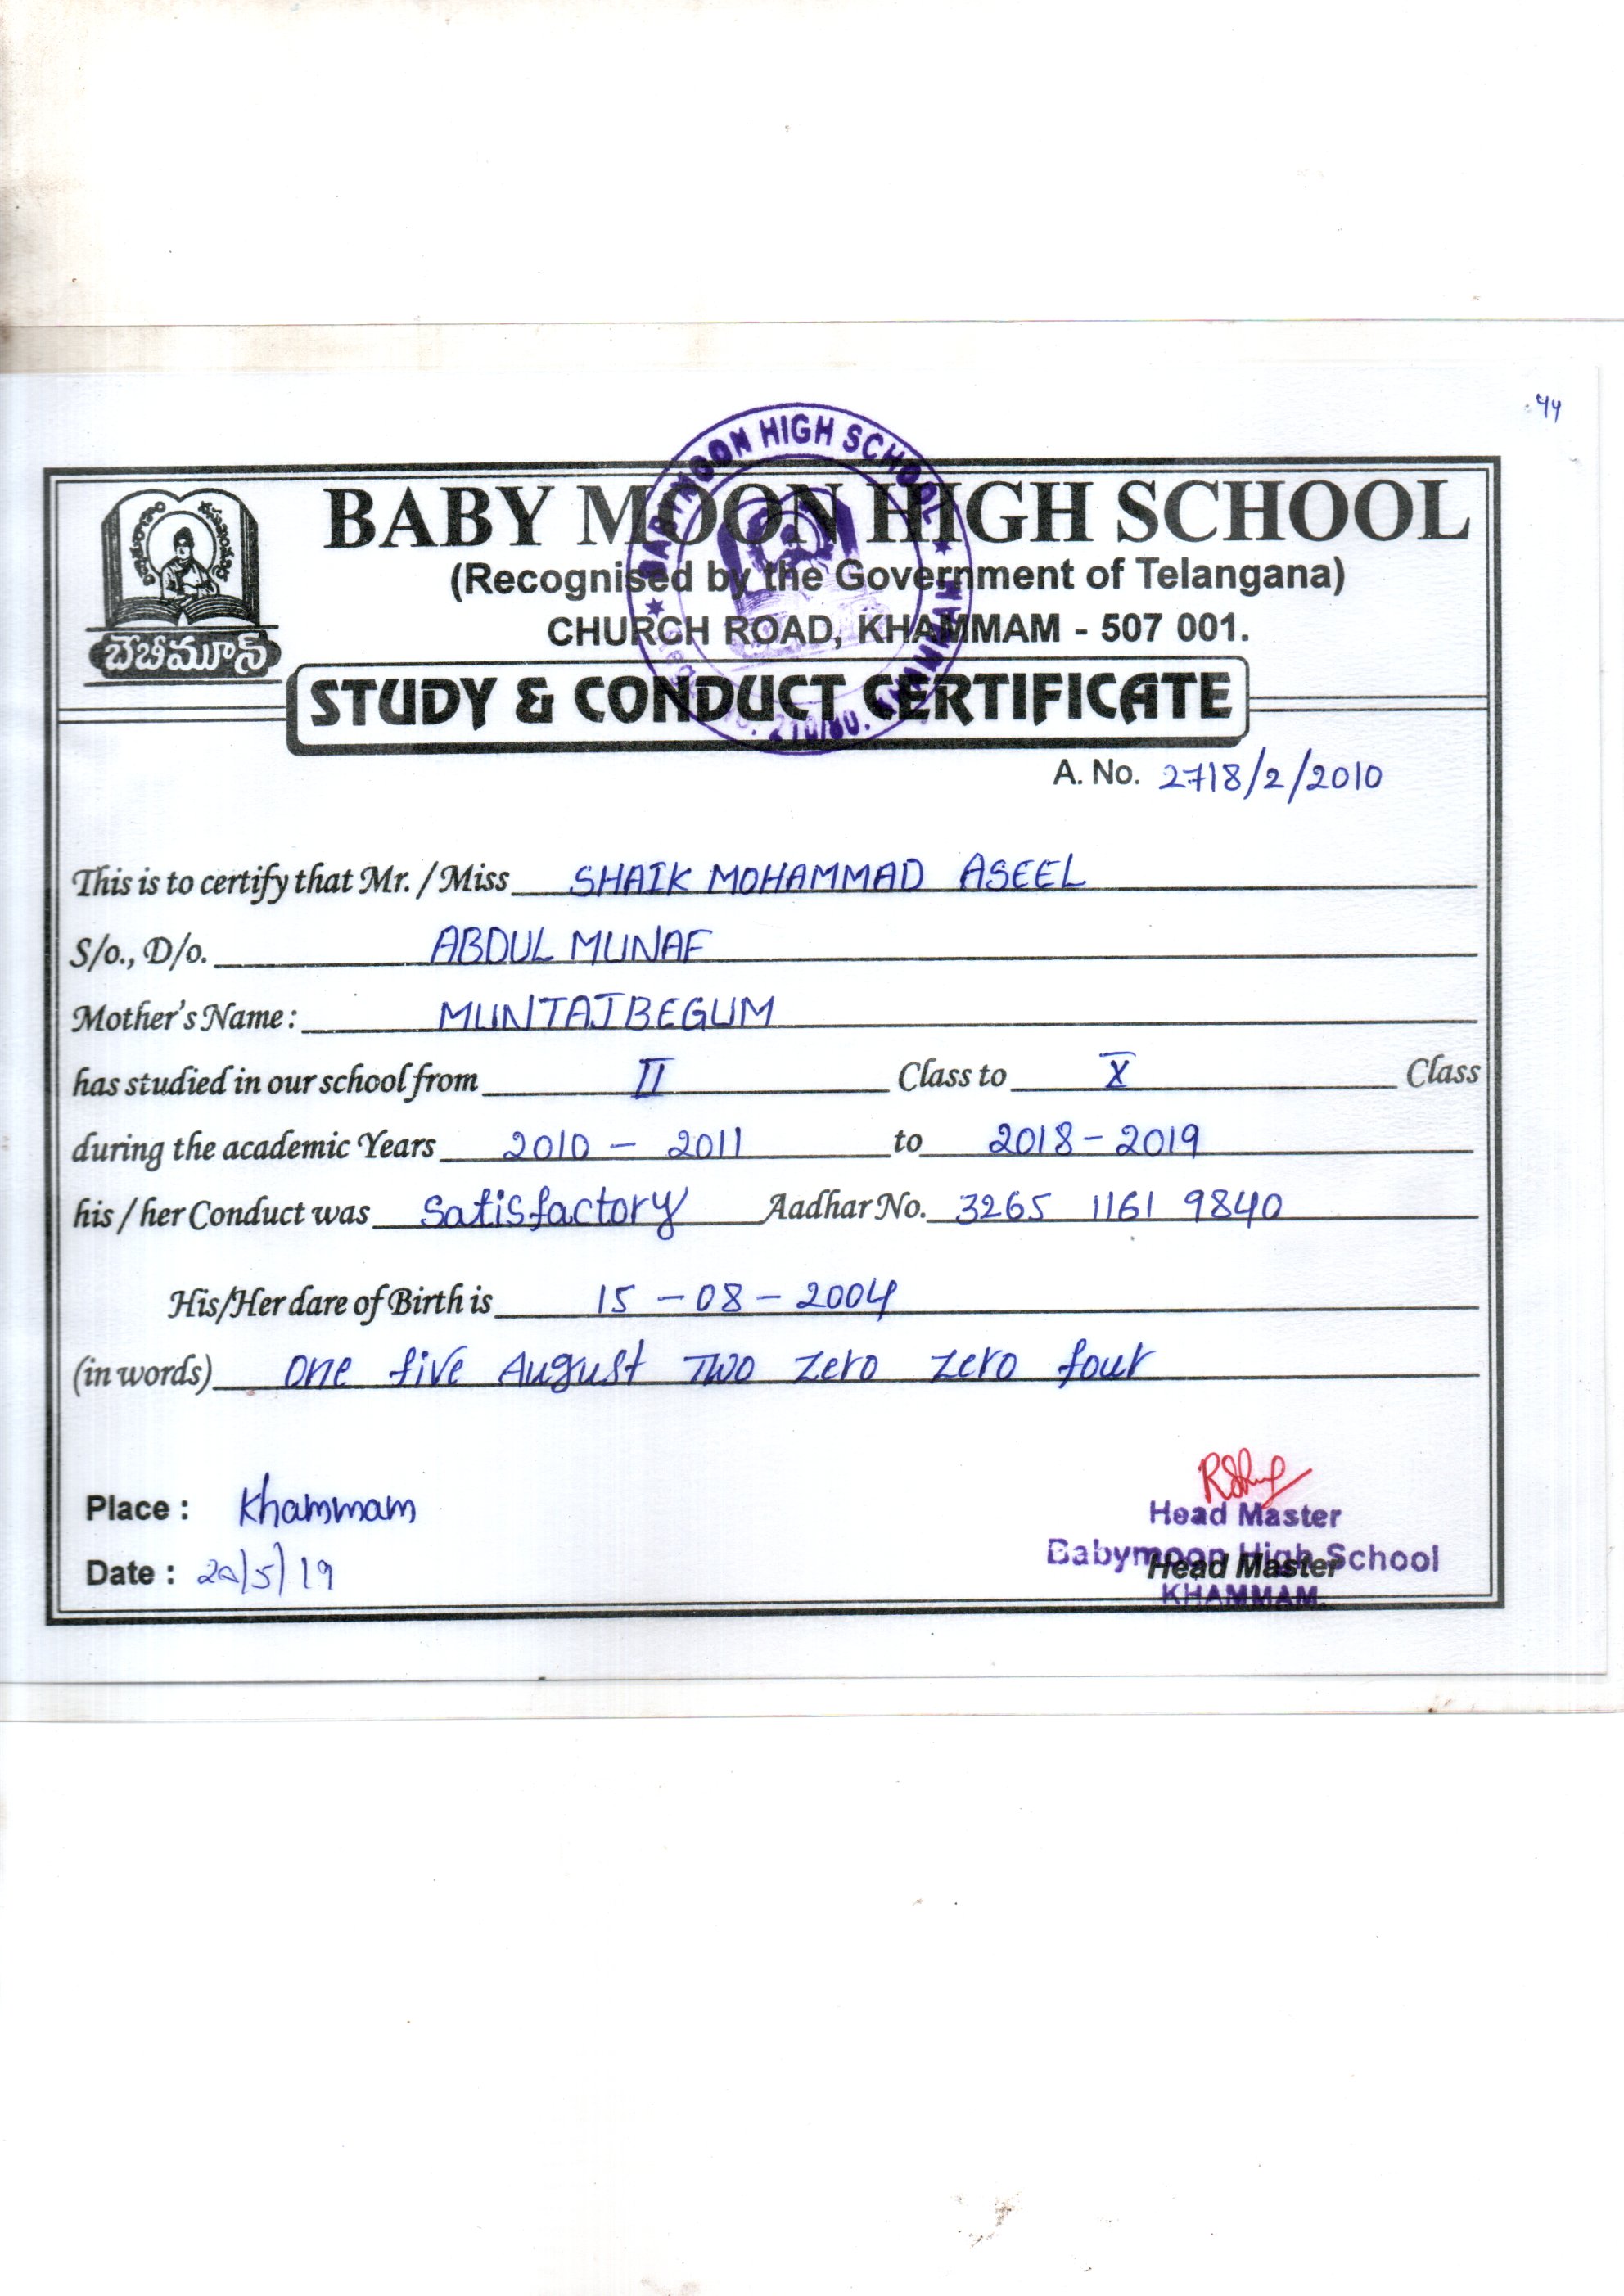 44
BABY MOON HIGH SCHOOL
(Recognised by the Government of Telangana)
CHURCH ROAD, KHAMMAM - 507 001.
బేబీమూన్
BABYMOON HIGH SCHOOL
KHAMMAM
STUDY & CONDUCT CERTIFICATE
A. No. 2718/2/2010
This is to certify that Mr. / Miss SHAIK MOHAMMAD ASEEL
S/o., D/o. ABDUL MUNAF
Mother's Name : MUNTAJBEGUM
has studied in our school from II Class to X Class
during the academic Years 2010 - 2011 to 2018 - 2019
his / her Conduct was Satisfactory Aadhar No. 3265 1161 9840
His/Her dare of Birth is 15 - 08 - 2004
(in words) one five August Two zero zero four
Place : Khammam
Head Master
Babymoon High School
Head Master
Date : 20/5/19
KHAMMAM.